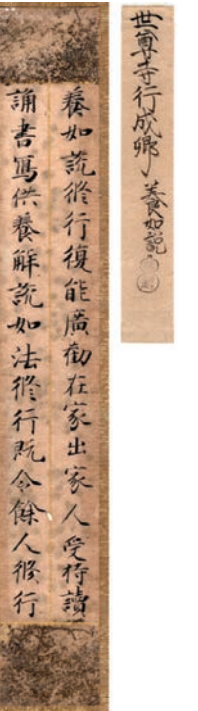 世尊寺行成卿 養如説
養如説修行復能廣勧在家出家人受持讀
誦書寫供養解説如法修行既令餘人修行